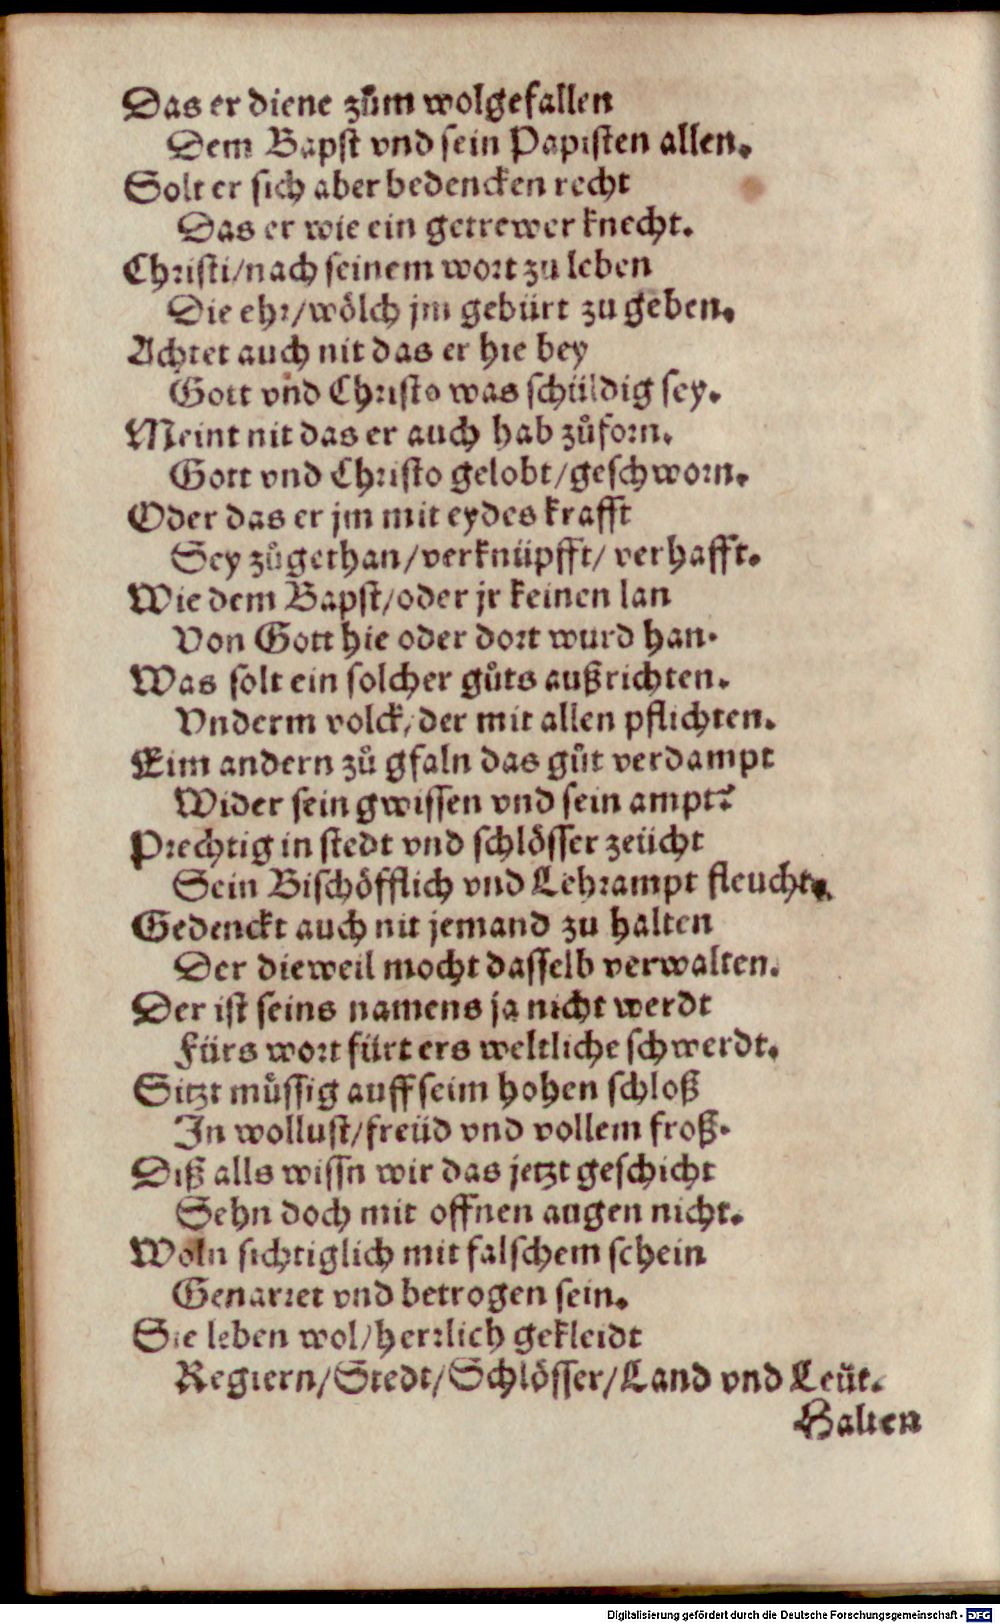 Das er diene zům wolgefallen
Dem Bapst vnd sein Papisten allen.
Solt er sich aber bedencken recht
Das er wie ein getrewer knecht.
Christi/nach seinem wort zu leben
Die ehr/wölch jm gebürt zu geben.
Achtet auch nit das er hie bey
Gott vnd Christo was schüldig sey.
Meint nit das er auch hab zůforn.
Gott vnd Christo gelobt/geschworn.
Oder das er jm mit eydes krafft
Sey zůgethan/verknüpfft/ verhafft.
Wie dem Bapst/oder jr keinen lan
Von Gott hie oder dort wurd han.
Was solt ein solcher gůts außrichten.
Vnderm volck/der mit allen pflichten.
Eim andern zů gfaln das gůt verdampt
Wider sein gwissen vnd sein ampt?
Prechtig in stedt vnd schlösser zeücht
Sein Bischöfflich vnd Lehrampt fleucht.
Gedenckt auch nit jemand zu halten
Der dieweil mocht dasselb verwalten.
Der ist seins namens ja nicht werdt
Fürs wort fürt ers weltliche schwerdt.
Sitzt müssig auff seim hohen schloß
In wollust/freüd vnd vollem froß.
Diß alls wissn wir das jetzt geschicht
Sehn doch mit offnen augen nicht.
Woln sichtiglich mit falschem schein
Genarret vnd betrogen sein.
Sie leben wol/herrlich gekleidt
Regiern/Stedt/Schlösser/Land vnd Leüt.
Halten
Digitalisierung gefördert durch die Deutsche Forschungsgemeinschaft - DFG